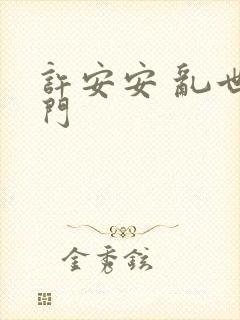 許安安 亂世
門
金秀鉉